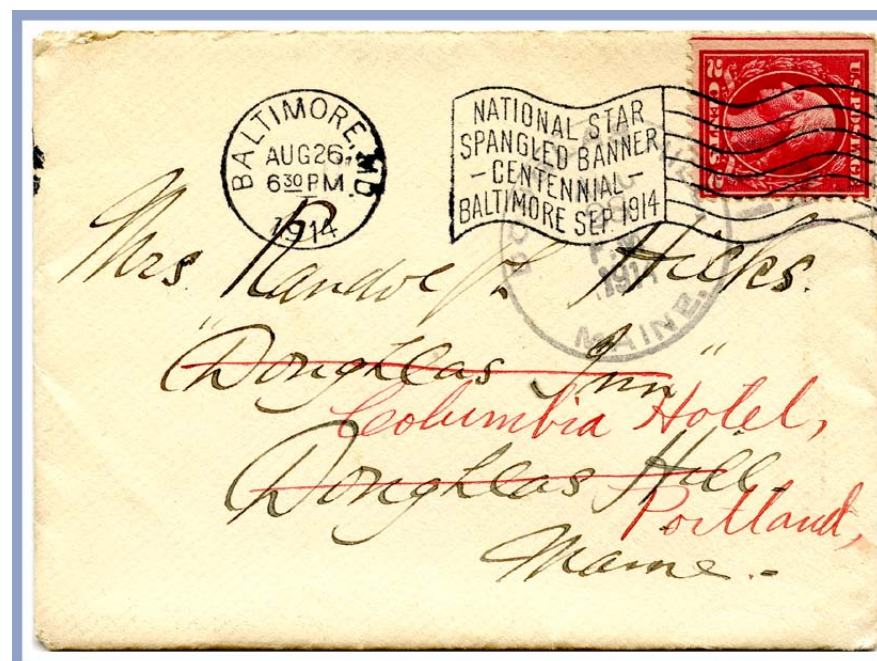 BALTIMORE, MD.
AUG 26
6 30 PM
1914
NATIONAL STAR
SPANGLED BANNER
- CENTENNIAL -
BALTIMORE SEP. 1914
U.S. POSTAGE
2 CENTS 2
P.M.
191
MAINE.
Mrs. Randolph Hicks.
"Doughlas Inn"
Columbia Hotel,
Doughlas Hill.
Portland,
Maine.-